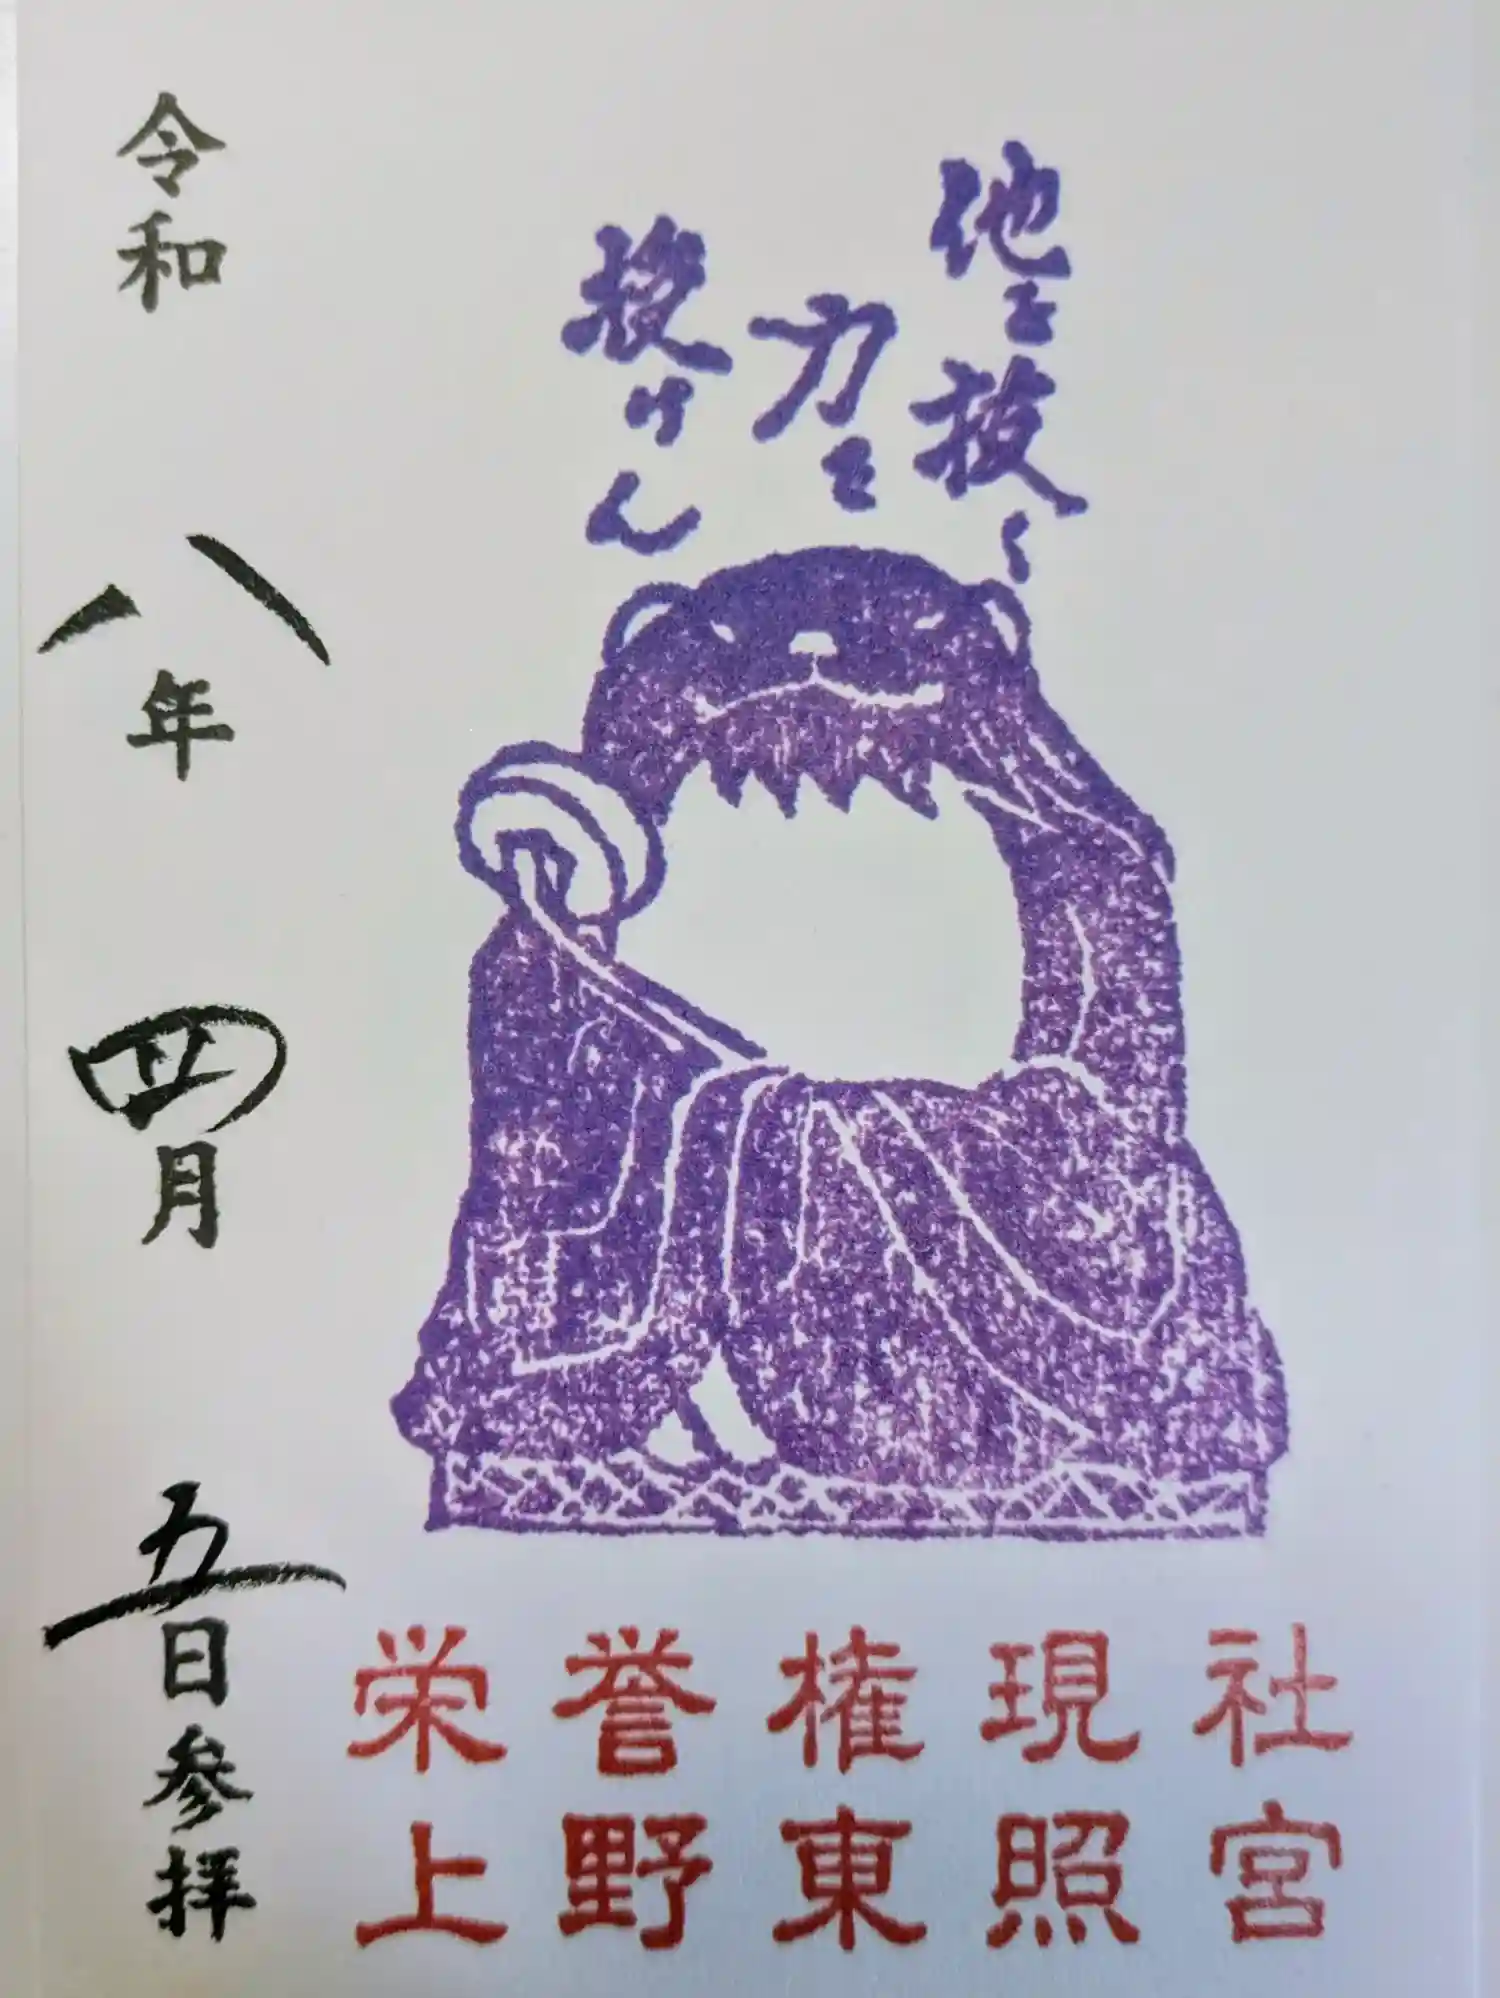 他を抜く
力を
授けん
令和八年四月五日参拝
栄誉権現社
上野東照宮